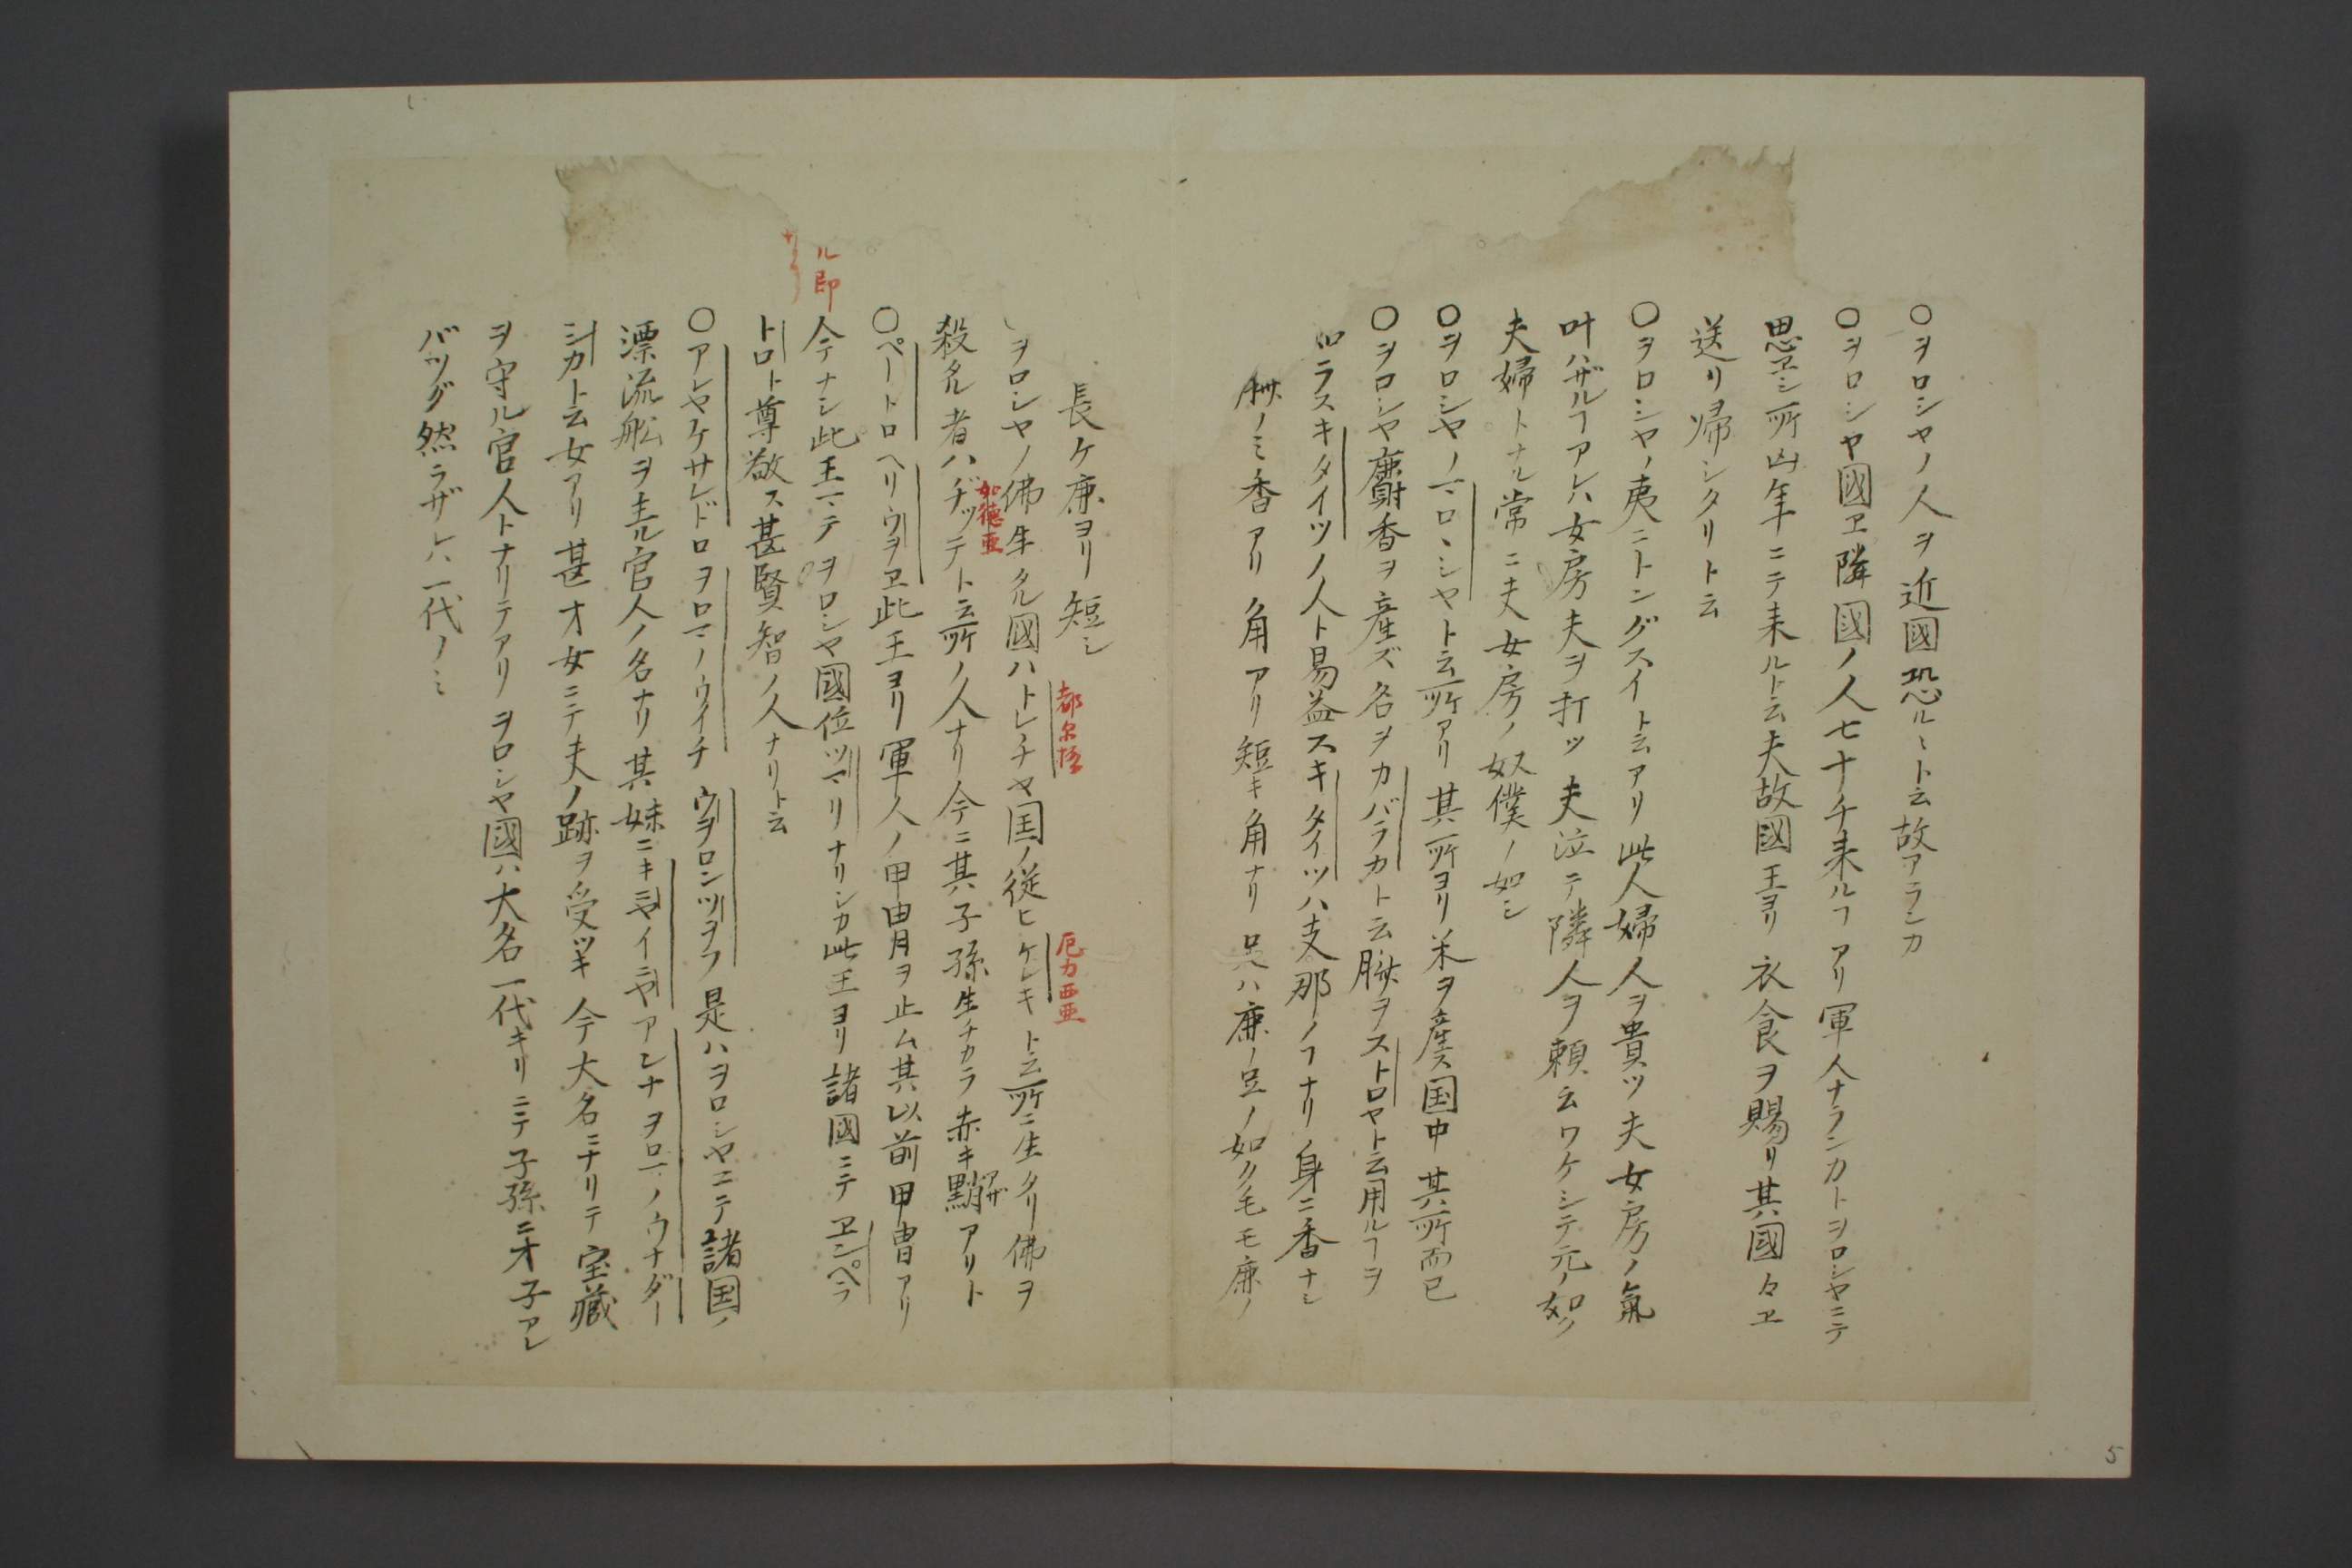 〇ヲロシヤノ人ヲ近國恐ルヽト云故アランカ
〇ヲロシヤ國ヱ隣國ノ人七十チ来ルヿアリ軍人ナランカトヲロシヤニテ
思ヱシ所凶年ニテ来ルト云夫故國王ヨリ衣食ヲ賜リ其國々ヱ
送リ帰シタリト云
〇ヲロシヤノ夷ニトングスイト云アリ此人婦人ヲ貴ツ夫女房ノ氣
叶ハザルヿアレハ女房夫ヲ打ツ夫泣テ隣人ヲ頼云ワケシテ元ノ如ク
夫婦トナル常ニ夫女房ノ奴僕ノ如シ
〇ヲロシヤノマロヽシヤト云所アリ其所ヨリ米ヲ産ス国中其所而已
〇ヲロシヤ麝香ヲ産ズ名ヲカバラカト云臍ヲストロヤト云用ルヿヲ
ラスキタイツノ人ト易益スキタイツハ支那ノヿナリ身ニ香ナシ
ノミ香アリ角アリ短キ角ナリ足ハ鹿ノ足ノ如ク毛モ鹿ノ
長ケ鹿ヨリ短シ
ヲロシヤノ佛生タル國ハトレチヤ国ノ従ヒケレキト云所ニ生タリ佛ヲ
都尔格
厄力西亜
殺タル者ハヂッテト云所ノ人ナリ今ニ其子孫生チカラ赤キ黶アザアリト
如徳亜
〇ペートロヘリウヲヱ此王ヨリ軍人ノ甲冑ヲ止ム其以前甲冑アリ
ル即
今テナシ此王マテヲロシヤ國位ツマリナリシカ此王ヨリ諸國ニテヱンペラ
トロト尊敬ス甚賢智ノ人ナリト云
〇アレヤケサレドロヲロマノウイチウヲロンツヲフ是ハヲロシヤニテ諸国ノ
漂流舩ヲ主ル官人ノ名ナリ其妹ニキミヤイミヤアレナヲロマノウナダー
シカト云女アリ甚才女ニテ夫ノ跡ヲ受ツキ今大名ニナリテ宝蔵
ヲ守ル官人トナリテアリヲロシヤ國ハ大名一代キリニテ子孫ニ才子アレ
バツグ然ラザレハ一代ノミ
5